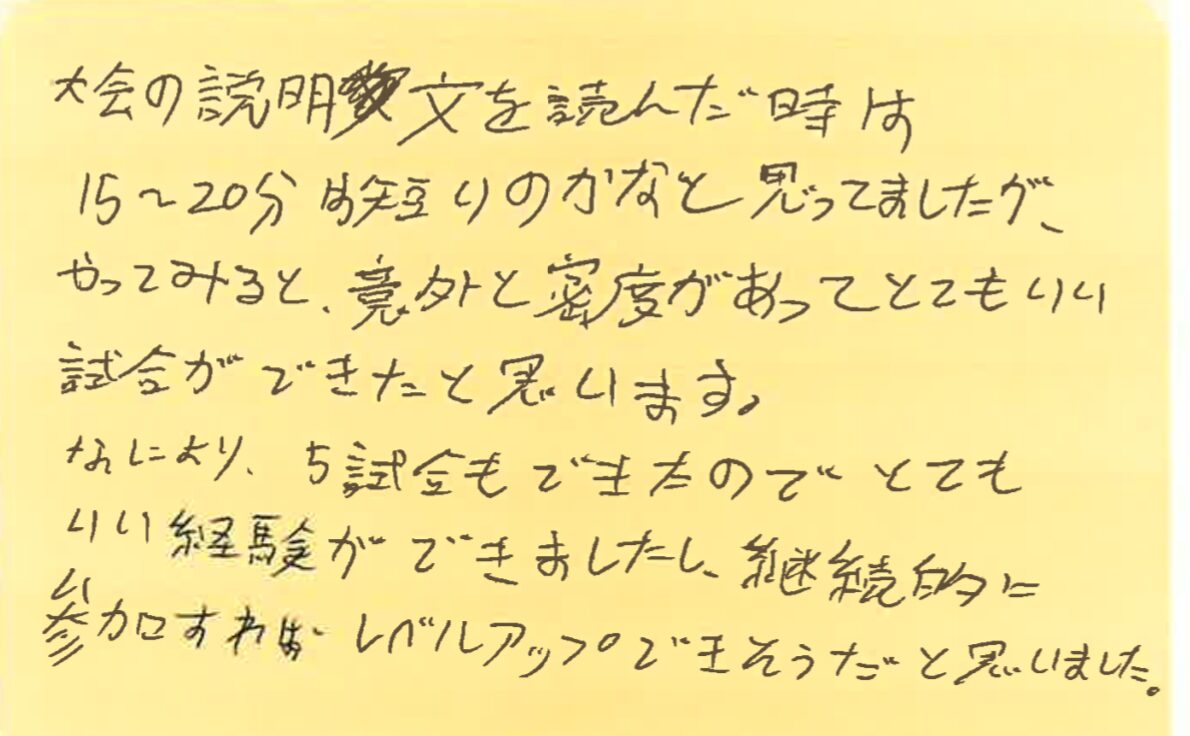 大会の説明文を読んだ時は
15～20分は短いのかなと思ってましたが、
やってみると、意外と密度があってとてもいい
試合ができたと思います。
なにより、5試合もできたのでとても
いい経験ができましたし、継続的に
参加すればレベルアップできそうだと思いました。